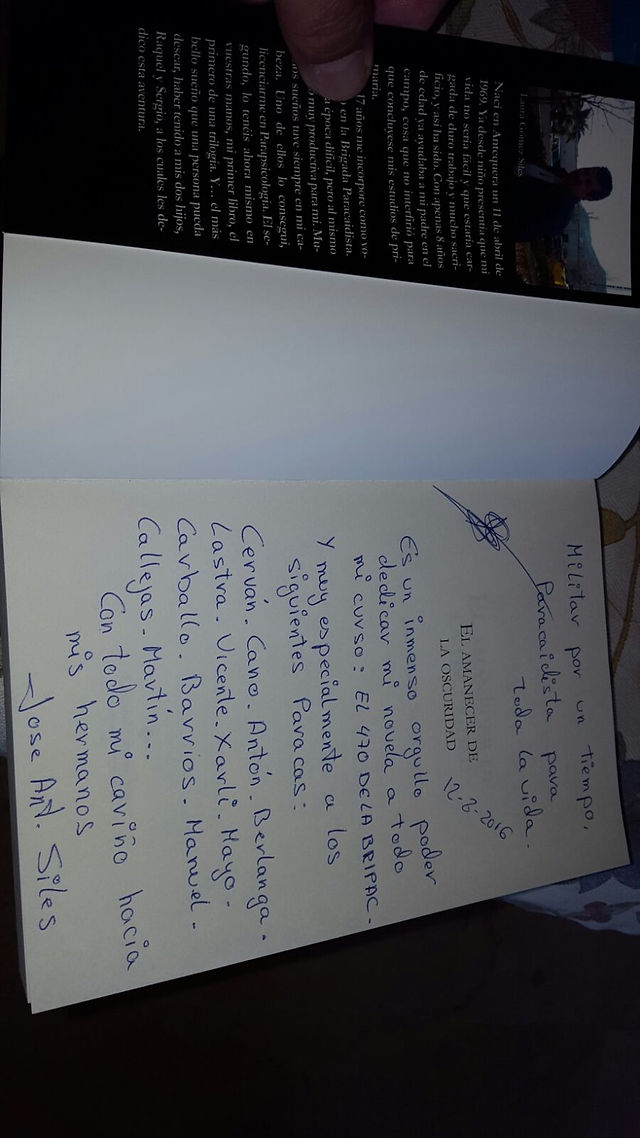 Laura Gómez Siles
Nací en Antequera un 11 de abril de
1969. Ya desde niño presentía que mi
vida no sería fácil y que estaría car-
gada de duro trabajo y mucho sacri-
ficio, y así ha sido. Con apenas 8 años
de edad ya ayudaba a mi padre en el
campo, cosa que no interfirió para
que concluyese mis estudios de pri-
maria.
17 años me incorporé como vo-
en la Brigada Paracaidista.
época difícil, pero al mismo
muy productiva para mí. Mu-
os sueños tuve siempre en mi ca-
beza. Uno de ellos lo conseguí,
licenciarme en Parapsicología. El se-
gundo, lo tenéis ahora mismo en
vuestras manos, mi primer libro, el
primero de una trilogía. Y... el más
bello sueño que una persona pueda
desear, haber tenido a mis dos hijos,
Raquel y Sergio, a los cuales les de-
dico esta aventura.
Militar por un tiempo,
Paracaidista para
toda la vida.
EL AMANECER DE
LA OSCURIDAD
12-8-2016
Es un inmenso orgullo poder
dedicar mi novela a todo
mi curso: EL 470 DE LA BRIPAC.
Y muy especialmente a los
siguientes Paracas:
Cerván. Cano. Antón. Berlanga.
Lastra. Vicente. Xarli. Mayo.
Carballo. Barrios. Manuel.
Callejas. Martín...
Con todo mi cariño hacia
mis hermanos
Jose Ant. Siles